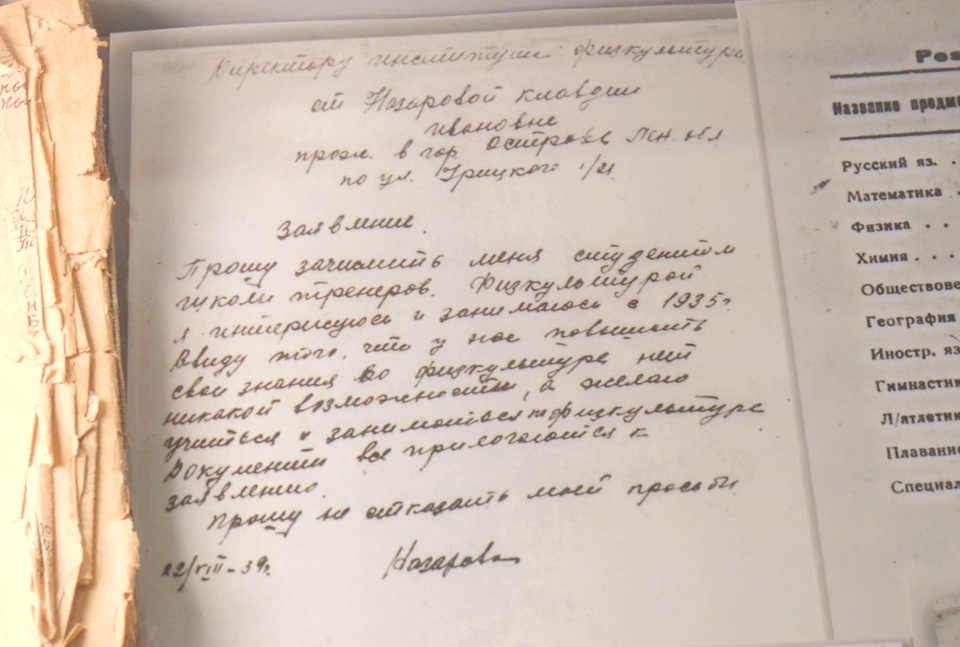 Директору института физкультуры
от Назаровой Клавдии
Ивановны
прож. в гор. Острове Лен. обл
по ул. Урицкого 1/21
Заявление.
Прошу зачислить меня студентом
школы тренеров. Физкультурой
я интересуюсь и занимаюсь с 1935г
Ввиду того, что у нас повысить
свои знания во физкультуре нет
никакой возможности, а желаю
учиться и заниматься по физкультуре
Документы все прилогаются к
заявлению.
Прошу не отказать моей просьбы
22/VIII-39г. Назарова
Рез
Название предме
Русский яз. .
Математика .
Физика . .
Химия . . .
Обществове
География
Иностр. яз
Гимнастик
Л/атлетик
Плавание
Специал